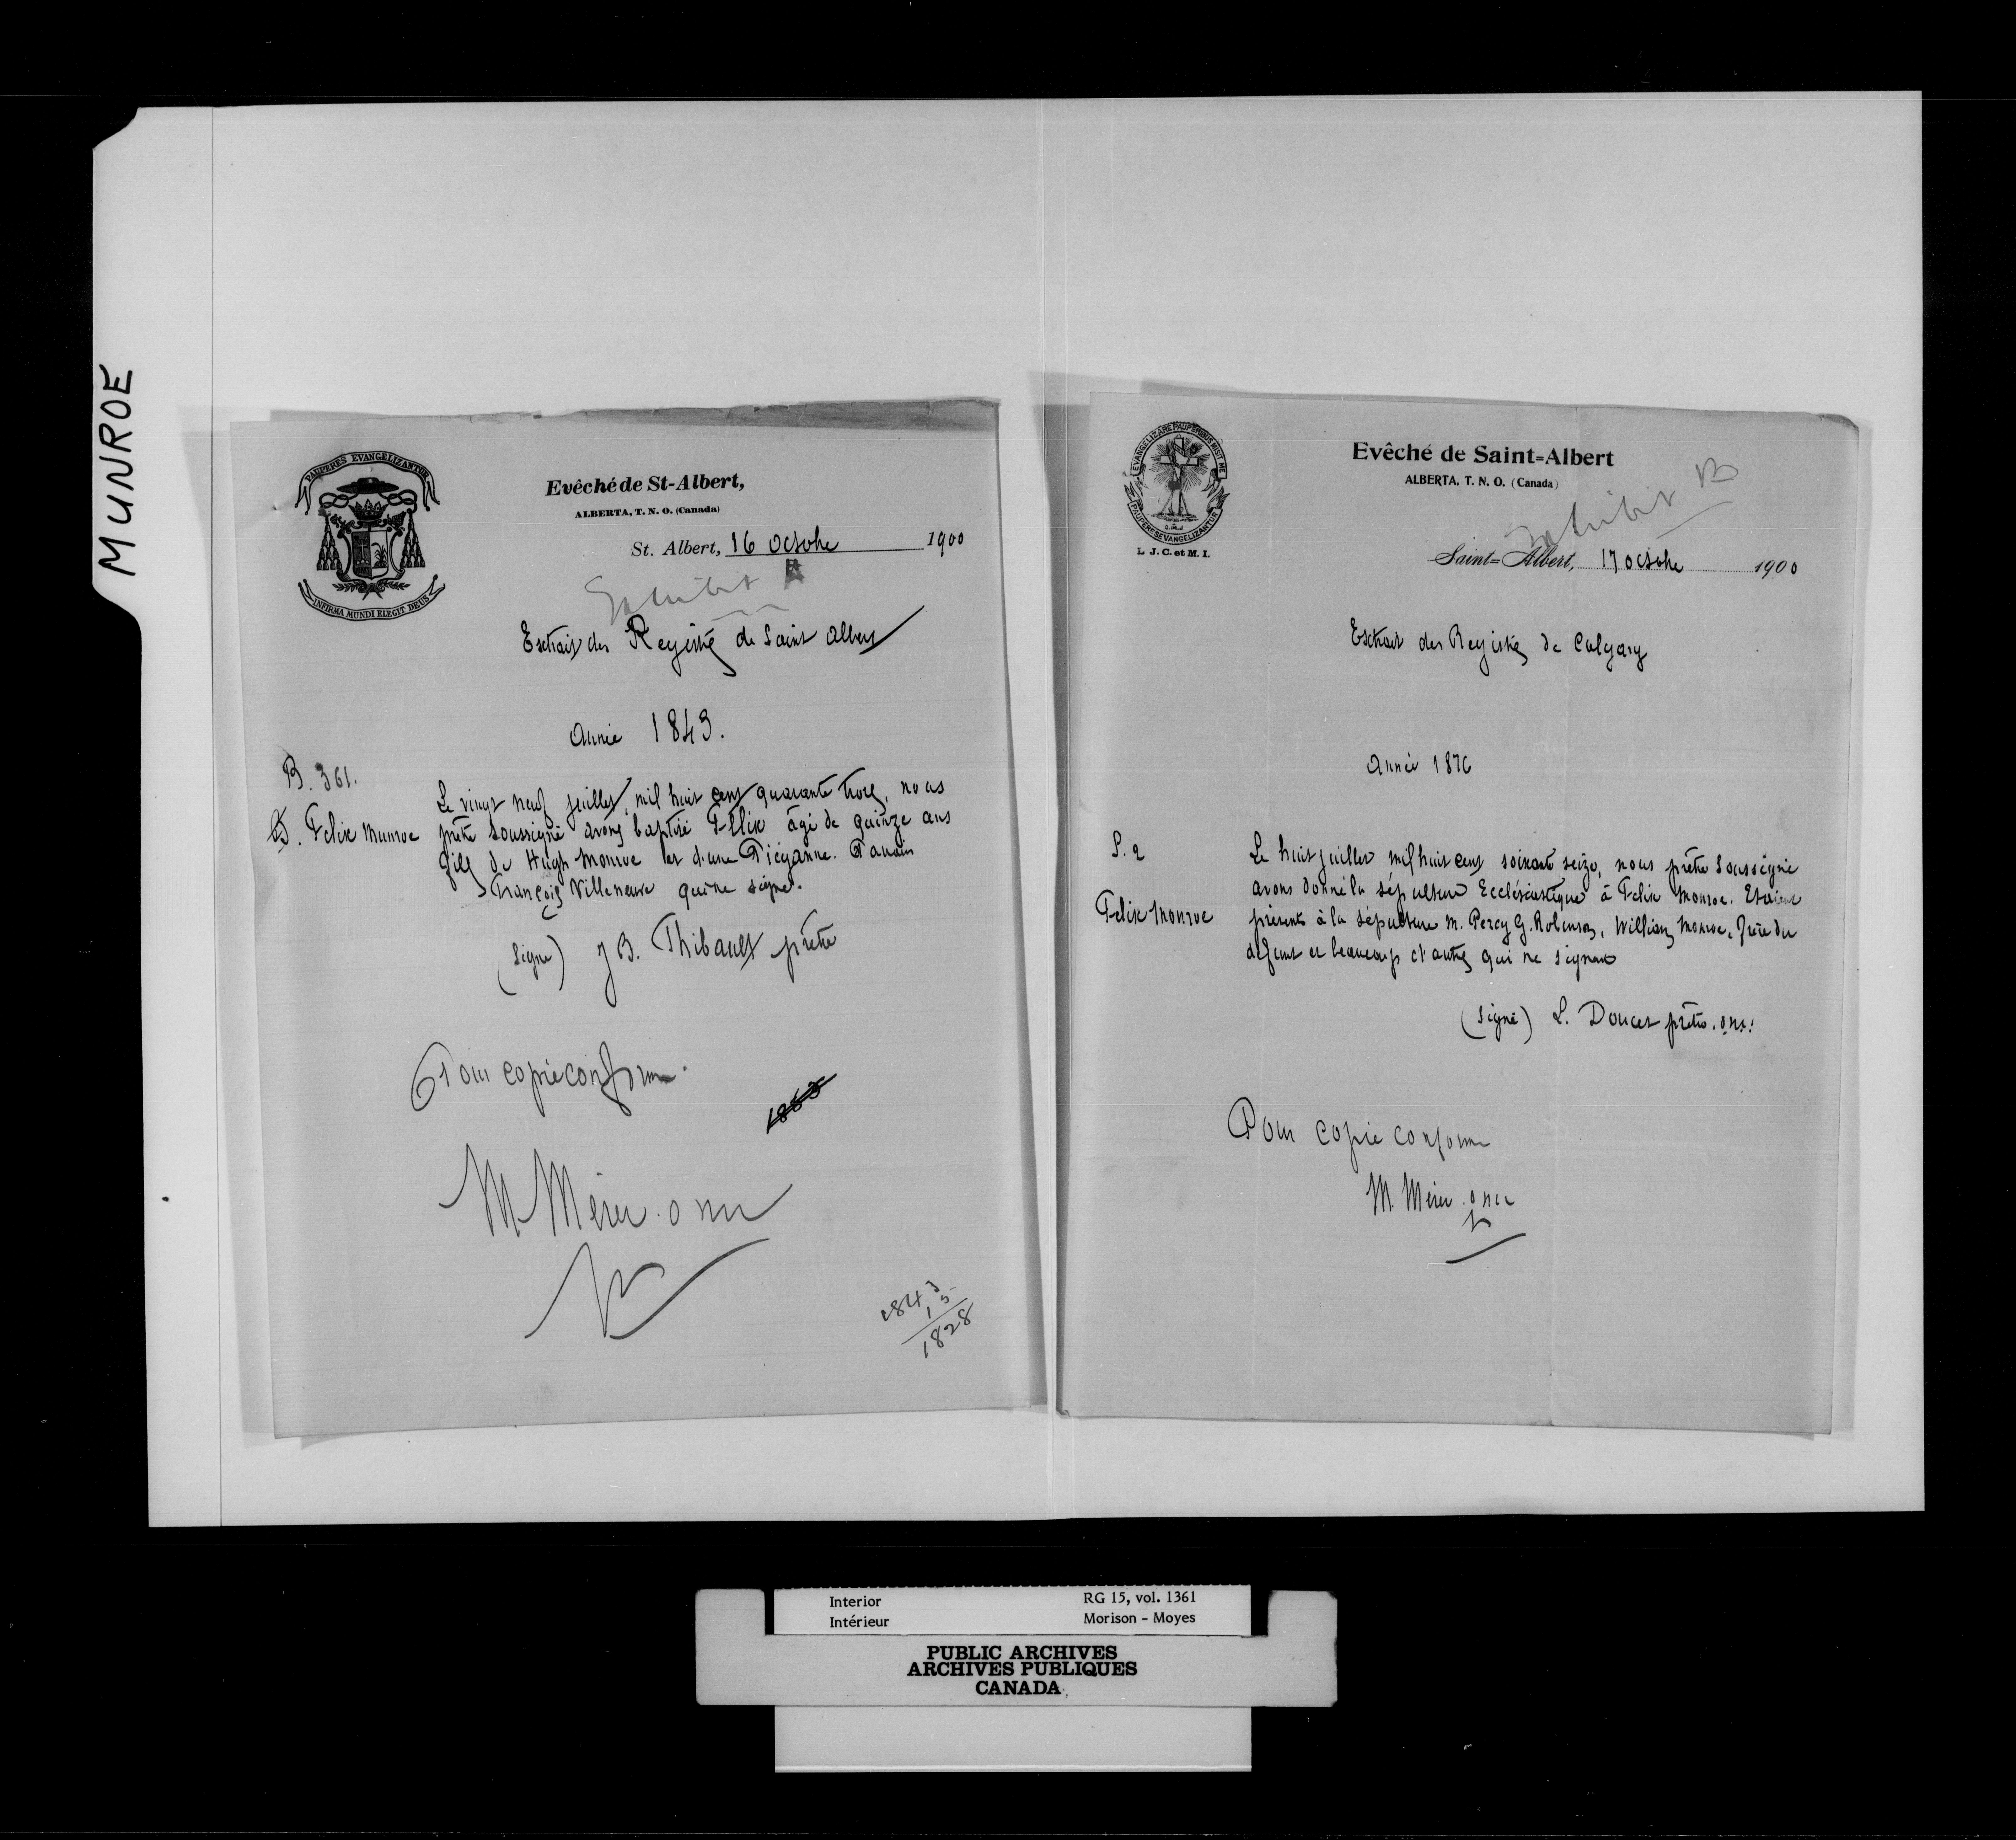 MUNROE
PAUPERES EVANGELIZANTUR
INFIRMA MUNDI ELEGIT DEUS
Evêché de St-Albert,
ALBERTA, T. N. O. (Canada)
St. Albert, 16 Octobre 1900
Exhibit A
Extrait des Registres de Saint Albert
Année 1843.
B. 361.
Felix Munroe
Le vingt neuf juillet, mil huit cent quarante trois, nous
prêtre soussigné avons baptisé Félix âgé de quinze ans
fils de Hugh Monroe et d'une Piéganne. Parrain
François Villeneuve qui ne signe.
(Signé) J B. Thibault prêtre
Pour copie conforme.
1863
M Mérer o m i
1843
15
1828
EVANGELIZARE PAUPERIBUS MISIT ME
PAUPERES EVANGELIZANTUR
O.M.I
L. J. C. et M. I.
Evêché de Saint=Albert
ALBERTA, T. N. O. (Canada)
Exhibit B
Saint=Albert, 17 octobre 1900
Extrait des Registres de Calgary
Année 1876
S. 2
Felix Monroe
Le huit juillet mil huit cent soixante seize, nous prêtre soussigné
avons donné la sépulture Ecclésiastique à Felix Monroe. Etaient
présents à la sépulture M. Percy G. Robinson, William Monroe, frère du
défunt et beaucoup d'autres qui ne signent
(signé) L. Doucet prêtre. o.m.i.
Pour copie conforme
M. Mérer. omi
Interior
Intérieur
RG 15, vol. 1361
Morison - Moyes
PUBLIC ARCHIVES
ARCHIVES PUBLIQUES
CANADA